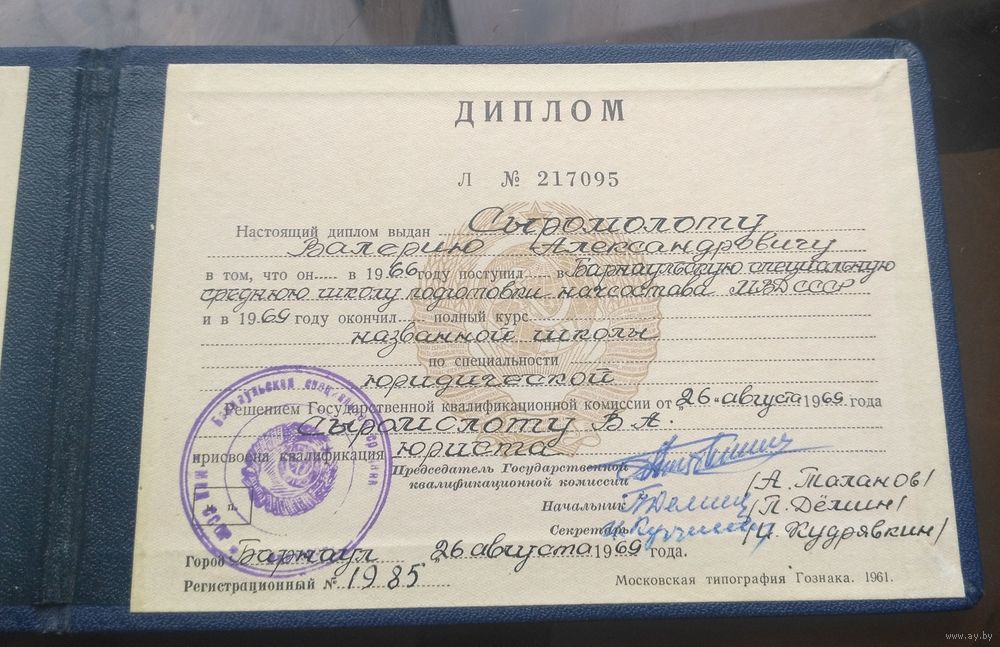 ДИПЛОМ
Л № 217095
Настоящий диплом выдан Сыромолоту
Валерию Александровичу
в том, что он в 1966 году поступил в Барнаульскую специальную
среднюю школу подготовки начсостава МВД СССР
и в 1969 году окончил полный курс
названной школы
по специальности
юридической
Решением Государственной квалификационной комиссии от "26" августа 1969 года
Сыромолоту В.А.
присвоена квалификация юриста
Председатель Государственной
квалификационной комиссии /А. Таланов/
Начальник /П. Дёмин/
Секретарь /И. Кудрявкин/
м. п.
Город Барнаул "26" августа 1969 года.
Регистрационный № 1985
Московская типография Гознака. 1961.
www.ay.by